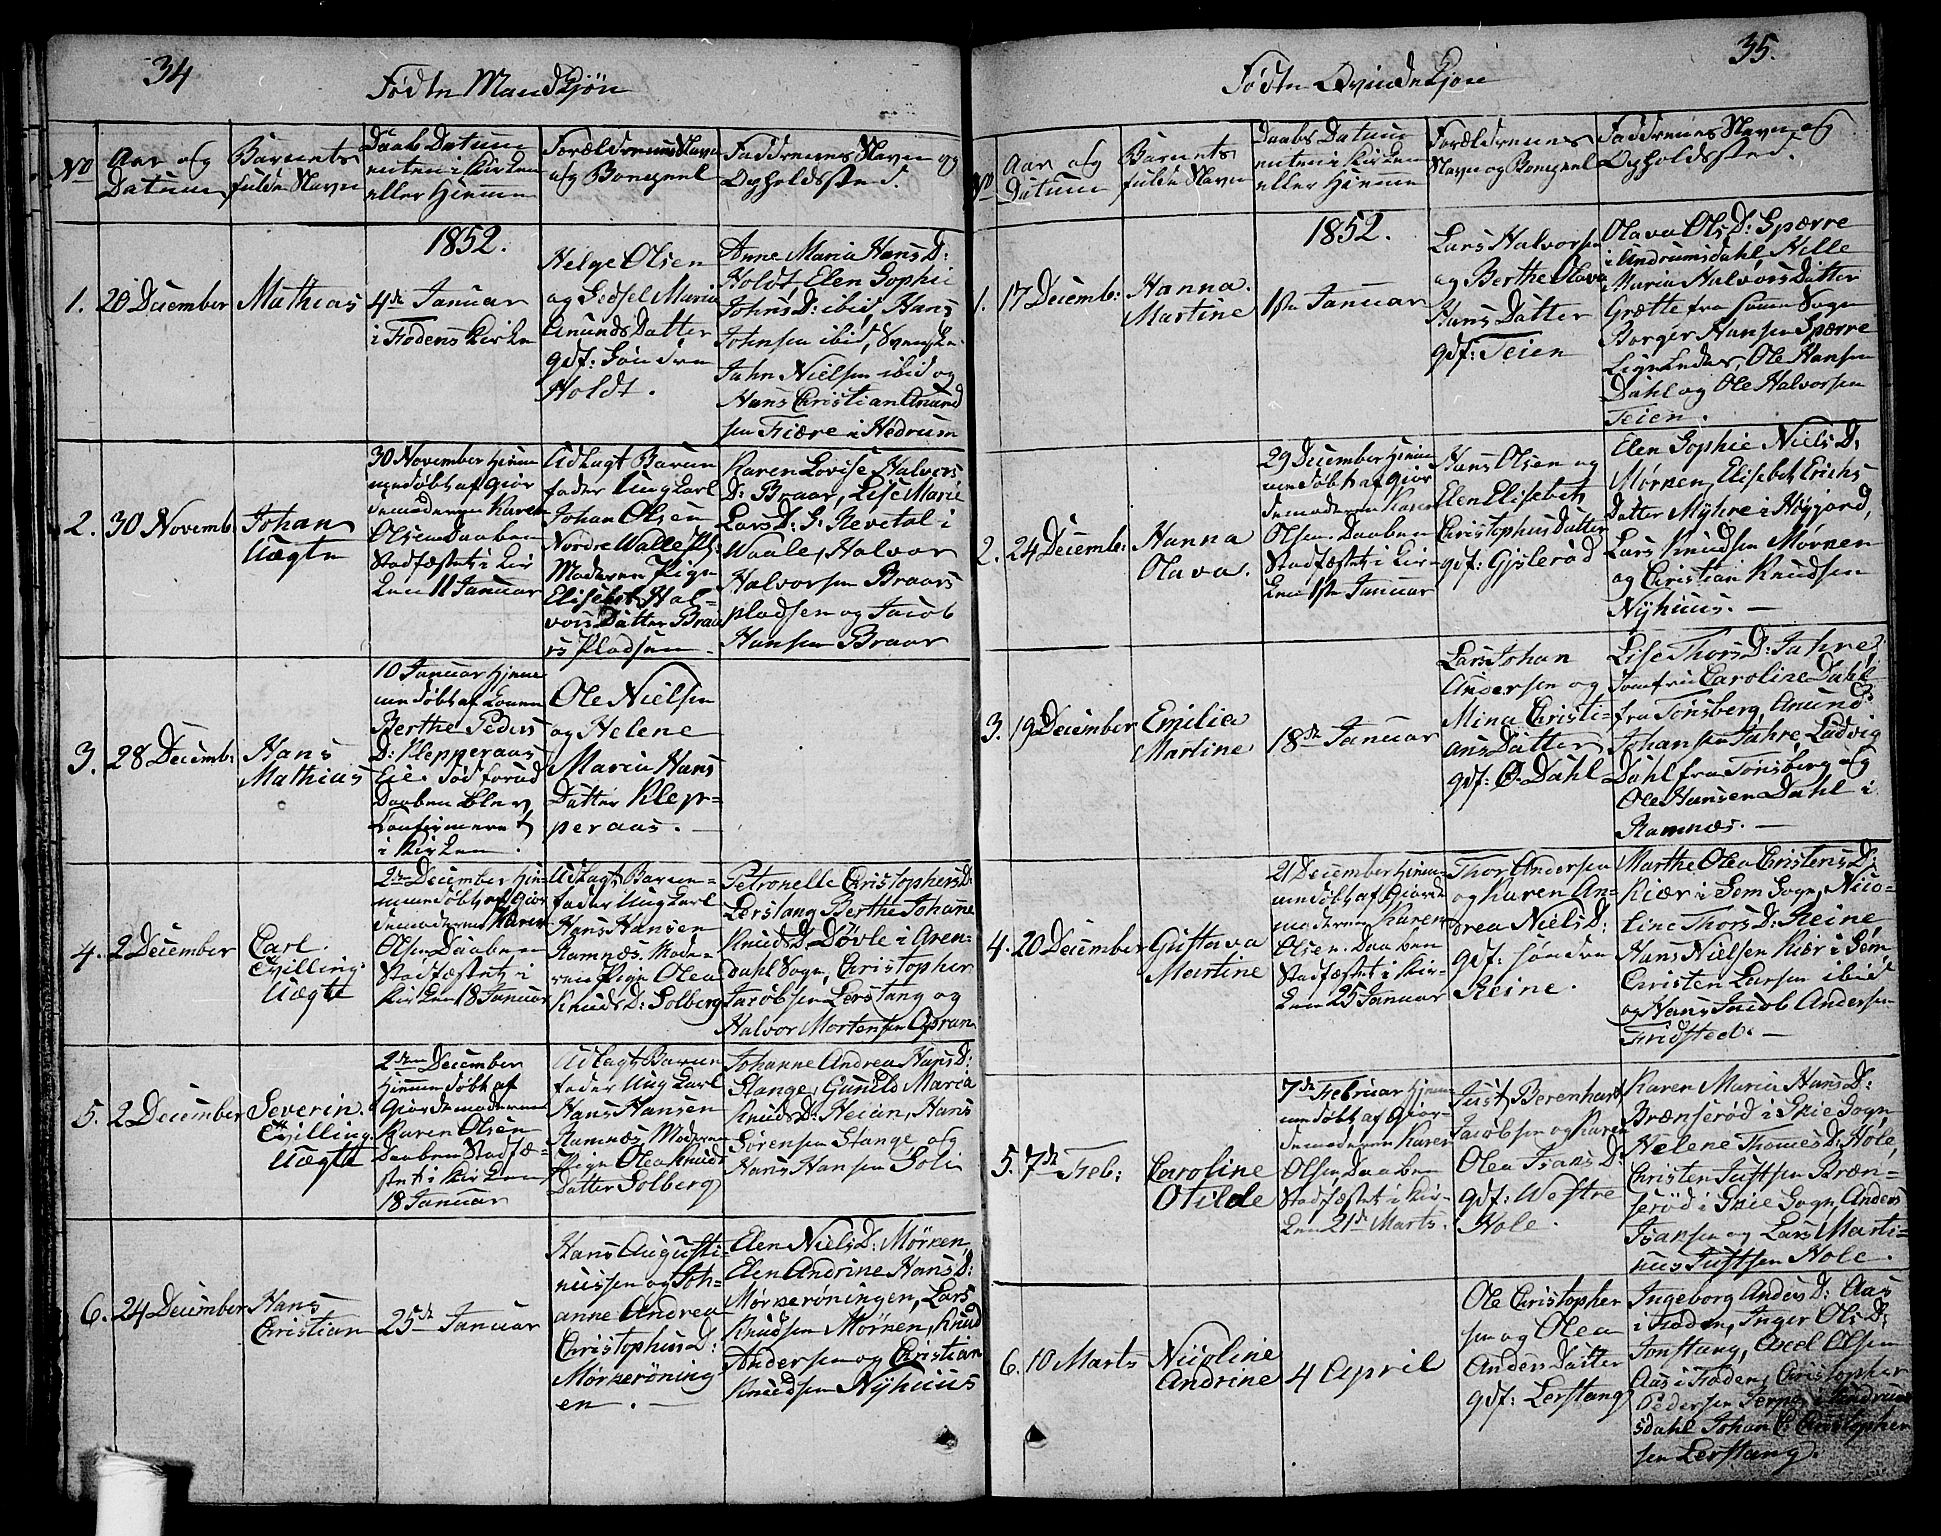 34
Fødte Mandkjøn
No
Aar og
Datum
Barnets
fulde Navn
Daabs Datum
enten i Kirken
eller Hjemme
Forældrenes Navn
og Bopæl
Faddrenes Navn og
Opholdssted.
1852.
1.
20 December
Mathias
4de Januar
i Fodens Kirke
Helge Olsen
og Sedsel Maria
Anunds Datter
gdf: Søndre
Holdt.
Anne Maria Hans D:
Holdt, Elen Sophie
Johns D: ibid, Hans
Johnsen ibid, Svenske
Jahn Nielsen ibid og
Hans Christian Anund
sen Fiære i Hedrum
2.
30 Novemb:
Johan
Uægte
30 November Hjem
medøbt af Gior
demoderen Karen
Olsen Daaben
Stadfæstet i Kir
ken 11 Januar
Udlagt Barne
fader Ung Karl
Johan Olsen
Nordre Walle Pl:
Moderen Pige
Elisebet Hal-
vors Datter Braa
rs Pladsen.
Karen Lovise Halvors
D: Braar, Lise Marie
Lars D: S: Revetal i
Waale, Halvor
Halvorsen Braars
pladsen og Jacob
Hansen Braar
3.
28 Decemb:
Hans
Mathias
10 Januar Hjem
medøbt af Konen
Berthe Peders
D: Klepperaas
Eie. Død forud
Daaben blev
Confirmeret
i Kirken.
Ole Nielsen
og Helene
Maria Hans
Datter Klep-
peraas.
4.
2 December
Carl.
Tvilling.
Uægte
2den December Hjem-
medøbt af Gior
demoderen Karen
Olsen Daaben
Stadfæstet i
Kirken 18 Januar
Udlagt Barne-
fader Ung Karl
Hans Hansen
Ramnæs. Mode-
ren Pige Olea
Knuds D: Solberg
Petronelle Christophers D:
Lerstang Berthe Johane
Knuds D: Døvle i Aren-
dahl Sogn, Christopher
Jacobsen Lerstang og
Halvor Mortensen Gran
5.
2 December
Severin.
Tvilling.
Uægte
2den December
Hjemmedøbt af
Giordemoderen
Karen Olsen
Daaben Stadfæ-
stet i Kirken
18 Januar
Udlagt Barne
fader Ung Karl
Hans Hansen
Ramnæs Moderen
Pige Olea Knuds
Datter Solberg
Johanne Andrea Hans D:
Stange, Gunild Maria
Knuds D: Heian, Hans
Sørensen Stange og
Hans Hansen Soli
6.
24 December
Hans
Christian
25de Januar
Hans Augusti-
nussen og Joh-
anne Andrea
Christophus D:
Mørkerøning
en.
Elen Niels D: Mørken,
Elen Andrine Hans D:
Mørkerøningen, Lars
Knudsen Mørken, Knud
Andersen og Christian
Knudsen Nyhuus
35.
Fødte Qvindekjøn
No
Aar og
Datum
Barnets
fulde Navn
Daabs Datum
enten i Kirken
eller Hjemme
Forældrenes
Navn og Bopæl
Faddrenes Navn og
Opholdssted.
1852.
1.
17 Decemb:
Hanna.
Martine
1ste Januar
Lars Halvorsen
og Berthe Olava
Hans Datter
gdf: Teien
Olava Ols D: Spærre
i Undrumsdahl, Hille
Maria Halvors Datter
Grette fra samme Sogn
Borger Hansen Spærre
Ligeledes, Ole Hansen
Dahl og Ole Halvorsen
Teien.
2.
24 Decemb:
Hanna
Olava.
29 December Hjem
medøbt af Gior
demoderen Karen
Olsen. Daaben
Stadfæstet i Kir-
ken 1ste Januar
Hans Olsen og
Elen Elisebet
Christophus Datter
gdf: Gjslerød
Elen Sophie Niels D:
Mørken, Elisebet Erichs
Datter Myhre i Høyjord,
Lars Knudsen Mørken
og Christian Knudsen
Nyhuus.
3.
19 December
Emilia
Martine
18de Januar
Lars Johan
Andersen og
Mina Christi-
ans Datter
gdf: Ø. Dahl
Lise Thors D: Jahre,
Jomfru Caroline Dahl
fra Tønsberg, Anund
Johansen Jahre, Ludvig
Dahl fra Tønsberg og
Ole Hansen Dahl i
Ramnæs.
4.
20 December
Gustava
Martine
21 December Hjem-
medøbt af Giorde
moderen Karen
Olsen. Daaben
Stadfæstet i Kir-
ken 25 Januar
Thor Andersen
og Karen An-
drea Niels D:
gdf: søndre
Reine.
Marthe Olea Christens D:
Kiær i Sem Sogn, Nico-
line Thors D: Reine
Hans Nielsen Kiær i Sem,
Christen Larsen ibid
og Hans Jacob Andersen
Fridsted.
5.
7de Feb:
Caroline
Otilde
7de Februar Hjem-
medøbt af Gior-
demoderen Karen
Olsen, Daaben
Stadfæstet i Kir-
ken 21de Marts.
Just Berenhardt
Jacobsen og Karen
Olea Isaks D:
gdf: Westre
Hole.
Karen Maria Hans D:
Brænserød i Skie Sogn
Helene Thomes D: Hole,
Christen Justsen Bræn-
serød i Skie Sogn, Anders
Isaksen og Lars Marti-
nus Justsen Hole.
6.
10 Marts
Nicoline
Andrine
4 April
Ole Christopher
sen og Olea
Anders Datter
gdf: Lerstang
Ingeborg Anders D: Aas
i Foden, Inger Ols D:
Jonstang, Axel Olsen
Aas i Foden, Christopher
Pedersen Serpe i Undrum
sdahl Johan C: Christopher
sen Lerstang.